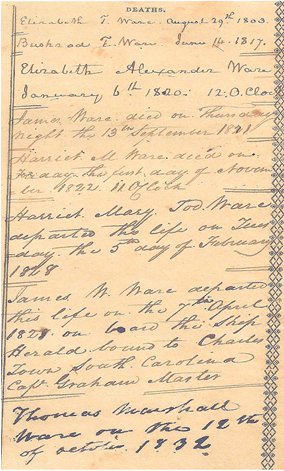 DEATHS.
Elizabeth T. Ware. August 29th 1803.
Bushrod T. Ware. June 14. 1817.
Elizabeth Alexander Ware
January 6th 1820. 12.O.Cloc
James Ware. died on Thursday
night the 13th September 1821
Harriet M Ware. died on
day the first day of Novem
ber 1822. 11 O'Clock
Harriet Mary Tod Ware
departed this life on Tues
day the 5th day of February
1828
James W. Ware departed
this life on the 7th April
182 on board the Ship
Herald bound to Charles
Town South Carolina
Capt Graham Master
Thomas Marshall
Ware on the 12th
of octob. 1832